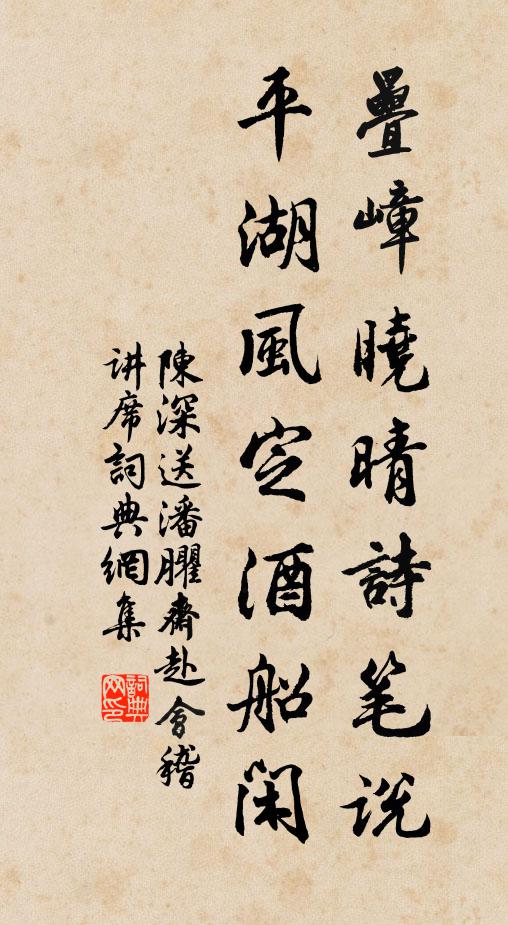 疊嶂曉晴詩笔説
平湖風定酒船閑
陳深送潘臞齋赴會稽
讲席詞典網集
詞典网印